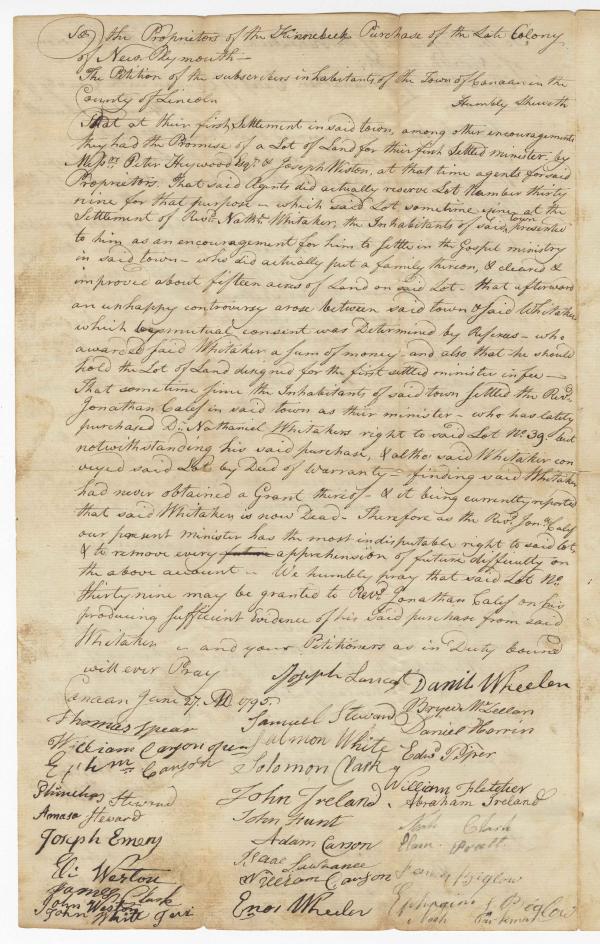 To the Proprietors of the Kinnebeck Purchase of the Late Colony
of New Plymouth—
The Petition of the subscribers inhabitants of the Town of Canaan in the
County of Lincoln Humbly Sheweth
That at their first Settlement in said town, among other encouragements
they had the Promise of a Lot of Land for their first Settled minister by
Messrs Peter Heywood Esqr. & Joseph Weston, at that time agents for said
Proprietors. That said Agents did actually reserve Lot Number thirty
nine for that purpose — which said Lot sometime since at the
Settlement of Revd. Nathl. Whitaker, the Inhabitants of said town presented
to him as an encouragement for him to settle in the Gospel ministry
in said town — who did actually put a family thereon, & cleared &
improved about fifteen acres of Land on said Lot — that afterward
an unhappy controversy arose between said town & said Whitaker
which by mutual consent was Determined by Referees — who
awarded said Whitaker a sum of money — and also that he should
hold the Lot of Land designed for the first settled minister in fee —
That sometime since the Inhabitants of said town settled the Revd.
Jonathan Calef in said town as their minister — who has lately
purchased Dr. Nathaniel Whitakers right to said Lot No. 39 but
notwithstanding his said purchase, & altho said Whitaker con
veyed said Lot by Deed of Warranty — finding said Whitaker
had never obtained a Grant thereof — & it being currently reported
that said Whitaker is now Dead — Therefore as the Revd. Jona. Calef
our present minister has the most indisputable right to said lot,
& to remove every future apprehension of future difficulty on
the above account — We humbly pray that said Lot No.
thirty nine may be granted to Revd. Jonathan Calef on his
producing sufficient Evidence of his said purchase from said
Whitaker — and your Petitioners as in Duty bound
will ever Pray
Canaan June 27. AD 1795
Joseph Danil Wheeler
Thomas Spear Samuel Steward Bryce McLellan
William Carson Salmon White Daniel
Ephm Carson Solomon Clark Edwd
Phinehas Steward John Ireland William Fletcher
Amasa Steward John Hunt Abraham Ireland
Joseph Emery Adam Carson Clark
Eli Weston Isaac Lawrance Pratt
James Clark William Carson James Bigelow
John Weston Enos Wheeler Bigelow
John White